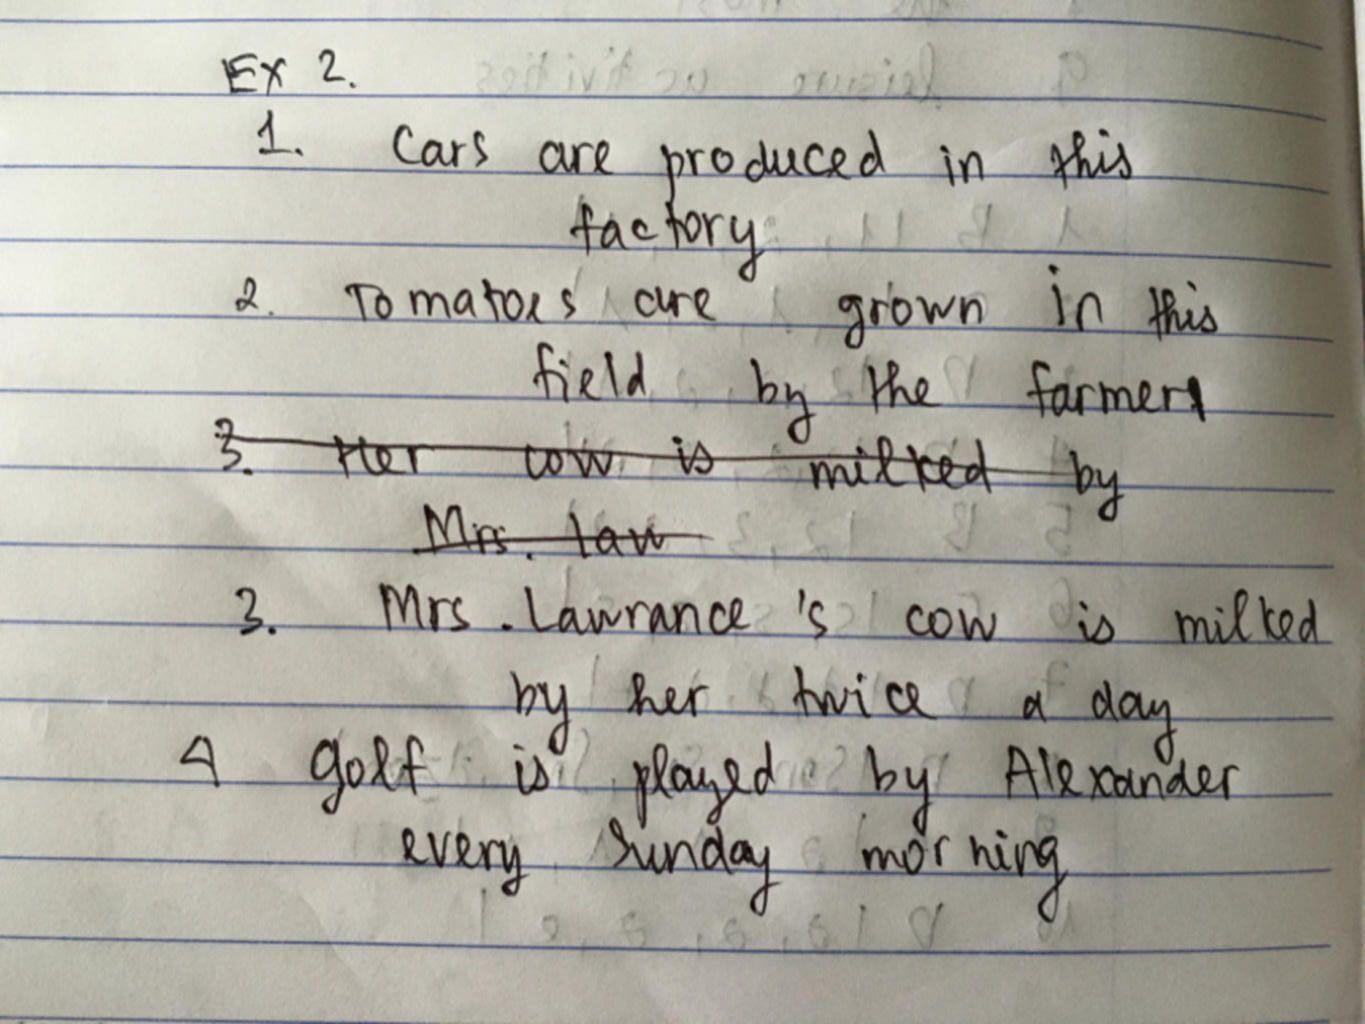 Ex 2.
1. Cars are produced in this
factory
2. Tomatoes are grown in this
field by the farmers
3. Her cow is milked by
Mrs. Law
3. Mrs. Lawrance's cow is milked
by her twice a day
4 golf is played by Alexander
every Sunday morning